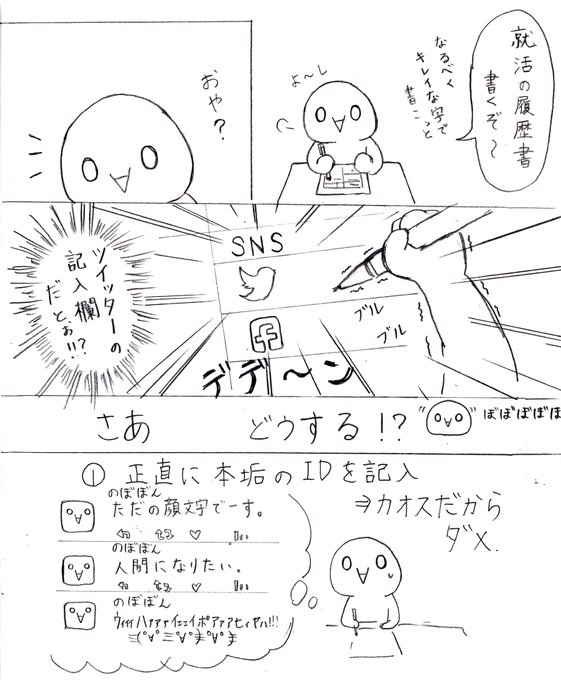 就活の履歴書
書くぞ～
なるべく
キレイな字で
書こっと
よ～し
おや?
SNS
ツイッターの
記入欄
だとぉ!!?
ブル
ブル
デデ～ン
さあ どうする!?
"ぼぼぼぼぼ
① 正直に本垢のIDを記入
のぼぼん
ただの顔文字でーす。
のぼぼん
人間になりたい。
のぼぼん
⇒カオスだから
ダメ.